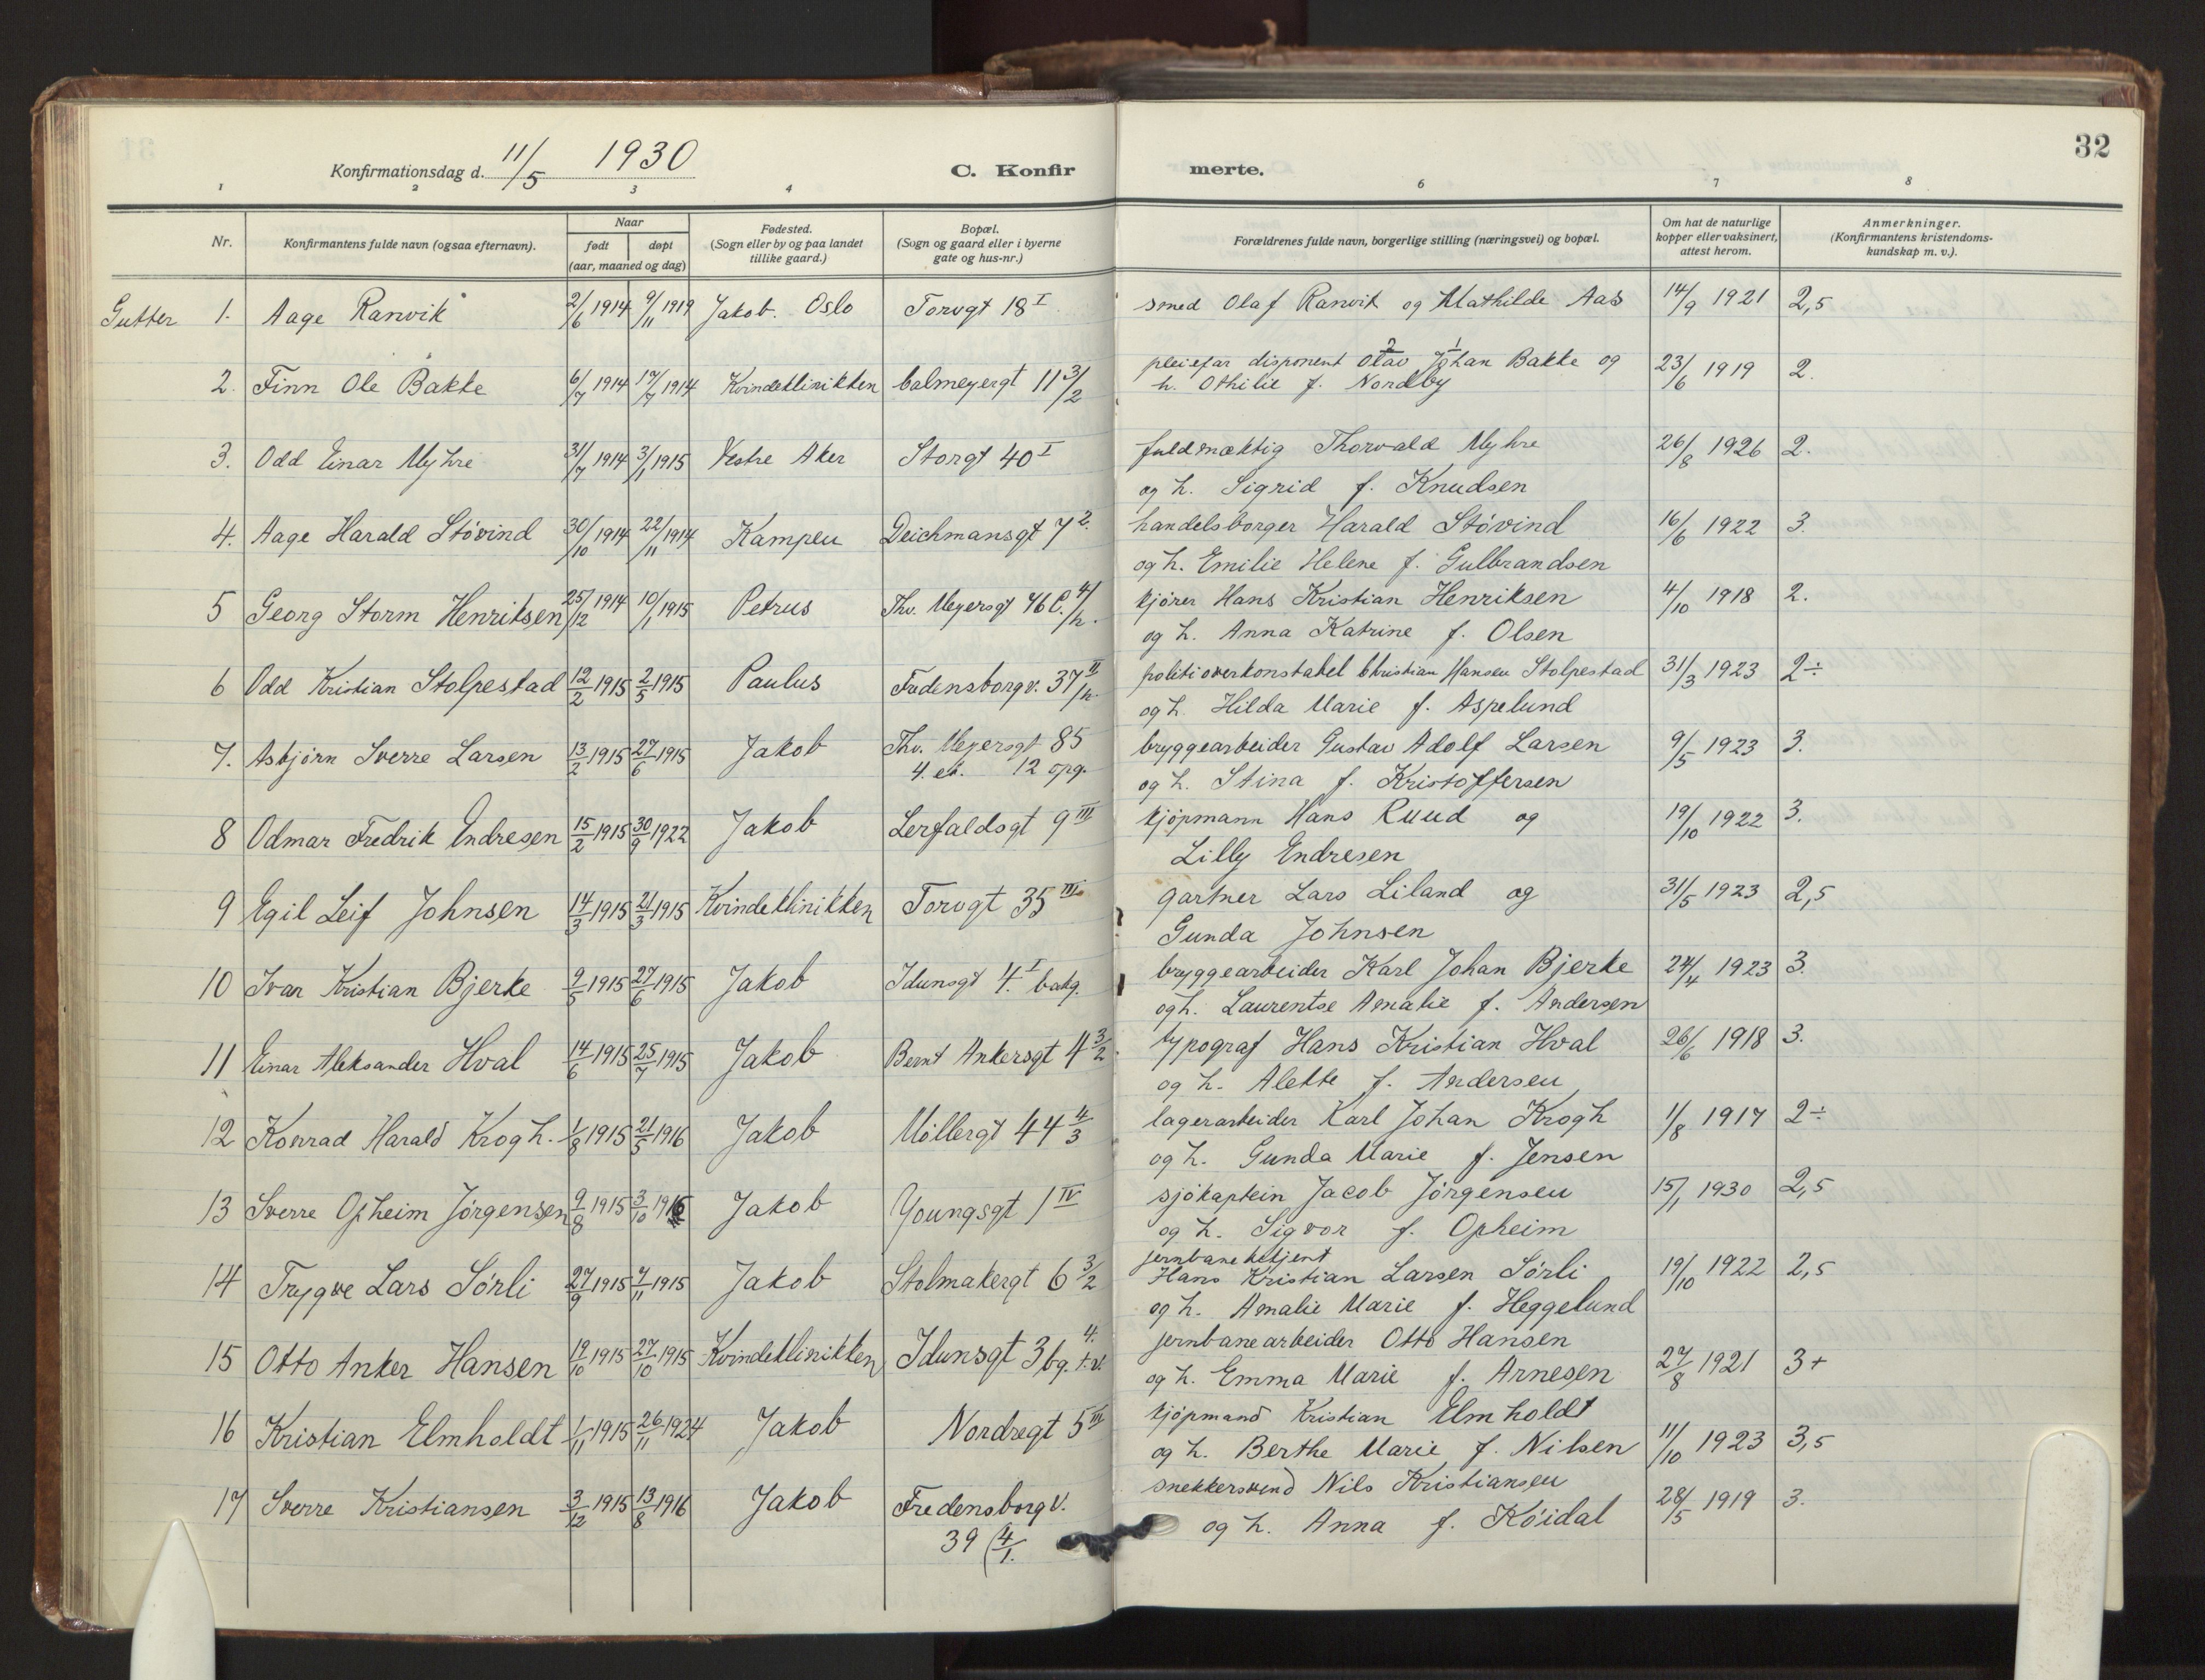 32
Konfirmationsdag d. 11/5 1930 C. Konfirmerte.
1 2 3 4 6 7 8
Nr. Konfirmantens fulde navn (ogsaa efternavn). Naar født døpt (aar, maaned og dag) Fødested. (Sogn eller by og paa landet tillike gaard.) Bopæl. (Sogn og gaard eller i byerne gate og hus-nr.) Forældrenes fulde navn, borgerlige stilling (næringsvei) og bopæl. Om hat de naturlige kopper eller vaksinert, attest herom. Anmerkninger. (Konfirmantens kristendomskundskap m. v.).
Gutter 1. Aage Ranvik 2/6 1914 9/11 1919 Jakob. Oslo Torvgt 18 I smed Olaf Ranvik og Mathilde Aas 14/9 1921 2,5
2. Finn Ole Bakke 6/7 1914 17/7 1914 Kvindeklinikken Calmeyergt 11 3/2 pleiefar disponent Olav Johan Bakke og 23/6 1919 2.
h. Othilie f. Nordby
3. Odd Einar Myhre 31/7 1914 3/1 1915 Vestre Aker Storgt 40 I fuldmæktig Thorvald Myhre 26/8 1926 2.
og h. Sigrid f. Knudsen
4. Aage Harald Stövind 30/10 1914 22/11 1914 Kampen Deichmansgt 7 2. handelsborger Harald Stövind 16/6 1922 3.
og h. Emilie Helene f. Gulbrandsen
5 Georg Storm Henriksen 25/12 1914 10/1 1915 Petrus Thv. Meyersgt 46 C. 4/h. kjörer Hans Kristian Henriksen 4/10 1918 2.
og h. Anna Katrine f. Olsen
6 Odd Kristian Stolpestad 12/2 1915 2/5 1915 Paulus Fredensborgv. 37 II/h. politioverkonstabel Christian Hansen Stolpestad 31/3 1923 2÷
og h. Hilda Marie f. Aspelund
7. Asbjörn Sverre Larsen 13/2 1915 27/6 1915 Jakob Thv. Meyersgt 85 bryggearbeider Gustav Adolf Larsen 9/5 1923 3.
4. et. 12 opg. og h. Stina f. Kristoffersen
8 Odmar Fredrik Endresen 15/2 1915 30/9 1922 Jakob Lerfaldsgt 9 III kjöpmann Hans Ruud og 19/10 1922 3.
Lilly Endresen
9 Egil Leif Johnsen 14/3 1915 21/3 1915 Kvindeklinikken Torvgt 35 III gartner Lars Liland og 31/5 1923 2,5
Gunda Johnsen
10 Ivar Kristian Bjerke 9/5 1915 27/6 1915 Jakob Idunsgt 4. I bakg. bryggearbeider Karl Johan Bjerke 24/4 1923 3.
og h. Laurentse Amalie f. Andersen
11 Einar Aleksander Hval 14/6 1915 25/7 1915 Jakob Bernt Ankersgt 4 3/2 typograf Hans Kristian Hval 26/6 1918 3.
og h. Alette f. Andersen
12 Konrad Harald Krogh. 1/8 1915 21/5 1916 Jakob Möllergt 44 4/3 lagerarbeider Karl Johan Krogh 1/8 1917 2÷
og h. Gunda Marie f. Jensen
13 Sverre Opheim Jörgensen 9/8 1915 3/10 1915 Jakob Youngsgt 1 IV sjökaptein Jacob Jörgensen 15/1 1930 2,5
og h. Sigvor f. Opheim
14 Trygve Lars Sörli 27/9 1915 7/11 1915 Jakob Stolmakergt 6 3/2 jernbanebetjent Hans Kristian Larsen Sörli 19/10 1922 2,5
og h. Amalie Marie f. Heggelund
15 Otto Anker Hansen 19/10 1915 27/10 1915 Kvindeklinikken Idunsgt 3 bg. 4. t.v. jernbanearbeider Otto Hansen
og h. Emma Marie f. Arnesen 27/8 1921 3+
16 Kristian Elmholdt 1/11 1915 26/11 1924 Jakob Nordregt 5 III kjöpmand Kristian Elmholdt
og h. Berthe Marie f. Nilsen 11/10 1923 3,5
17 Sverre Kristiansen 3/12 1915 13/8 1916 Jakob Fredensborgv. snekkersvend Nils Kristiansen 28/5 1919 3.
39 (4/1. og h. Anna f. Köidal